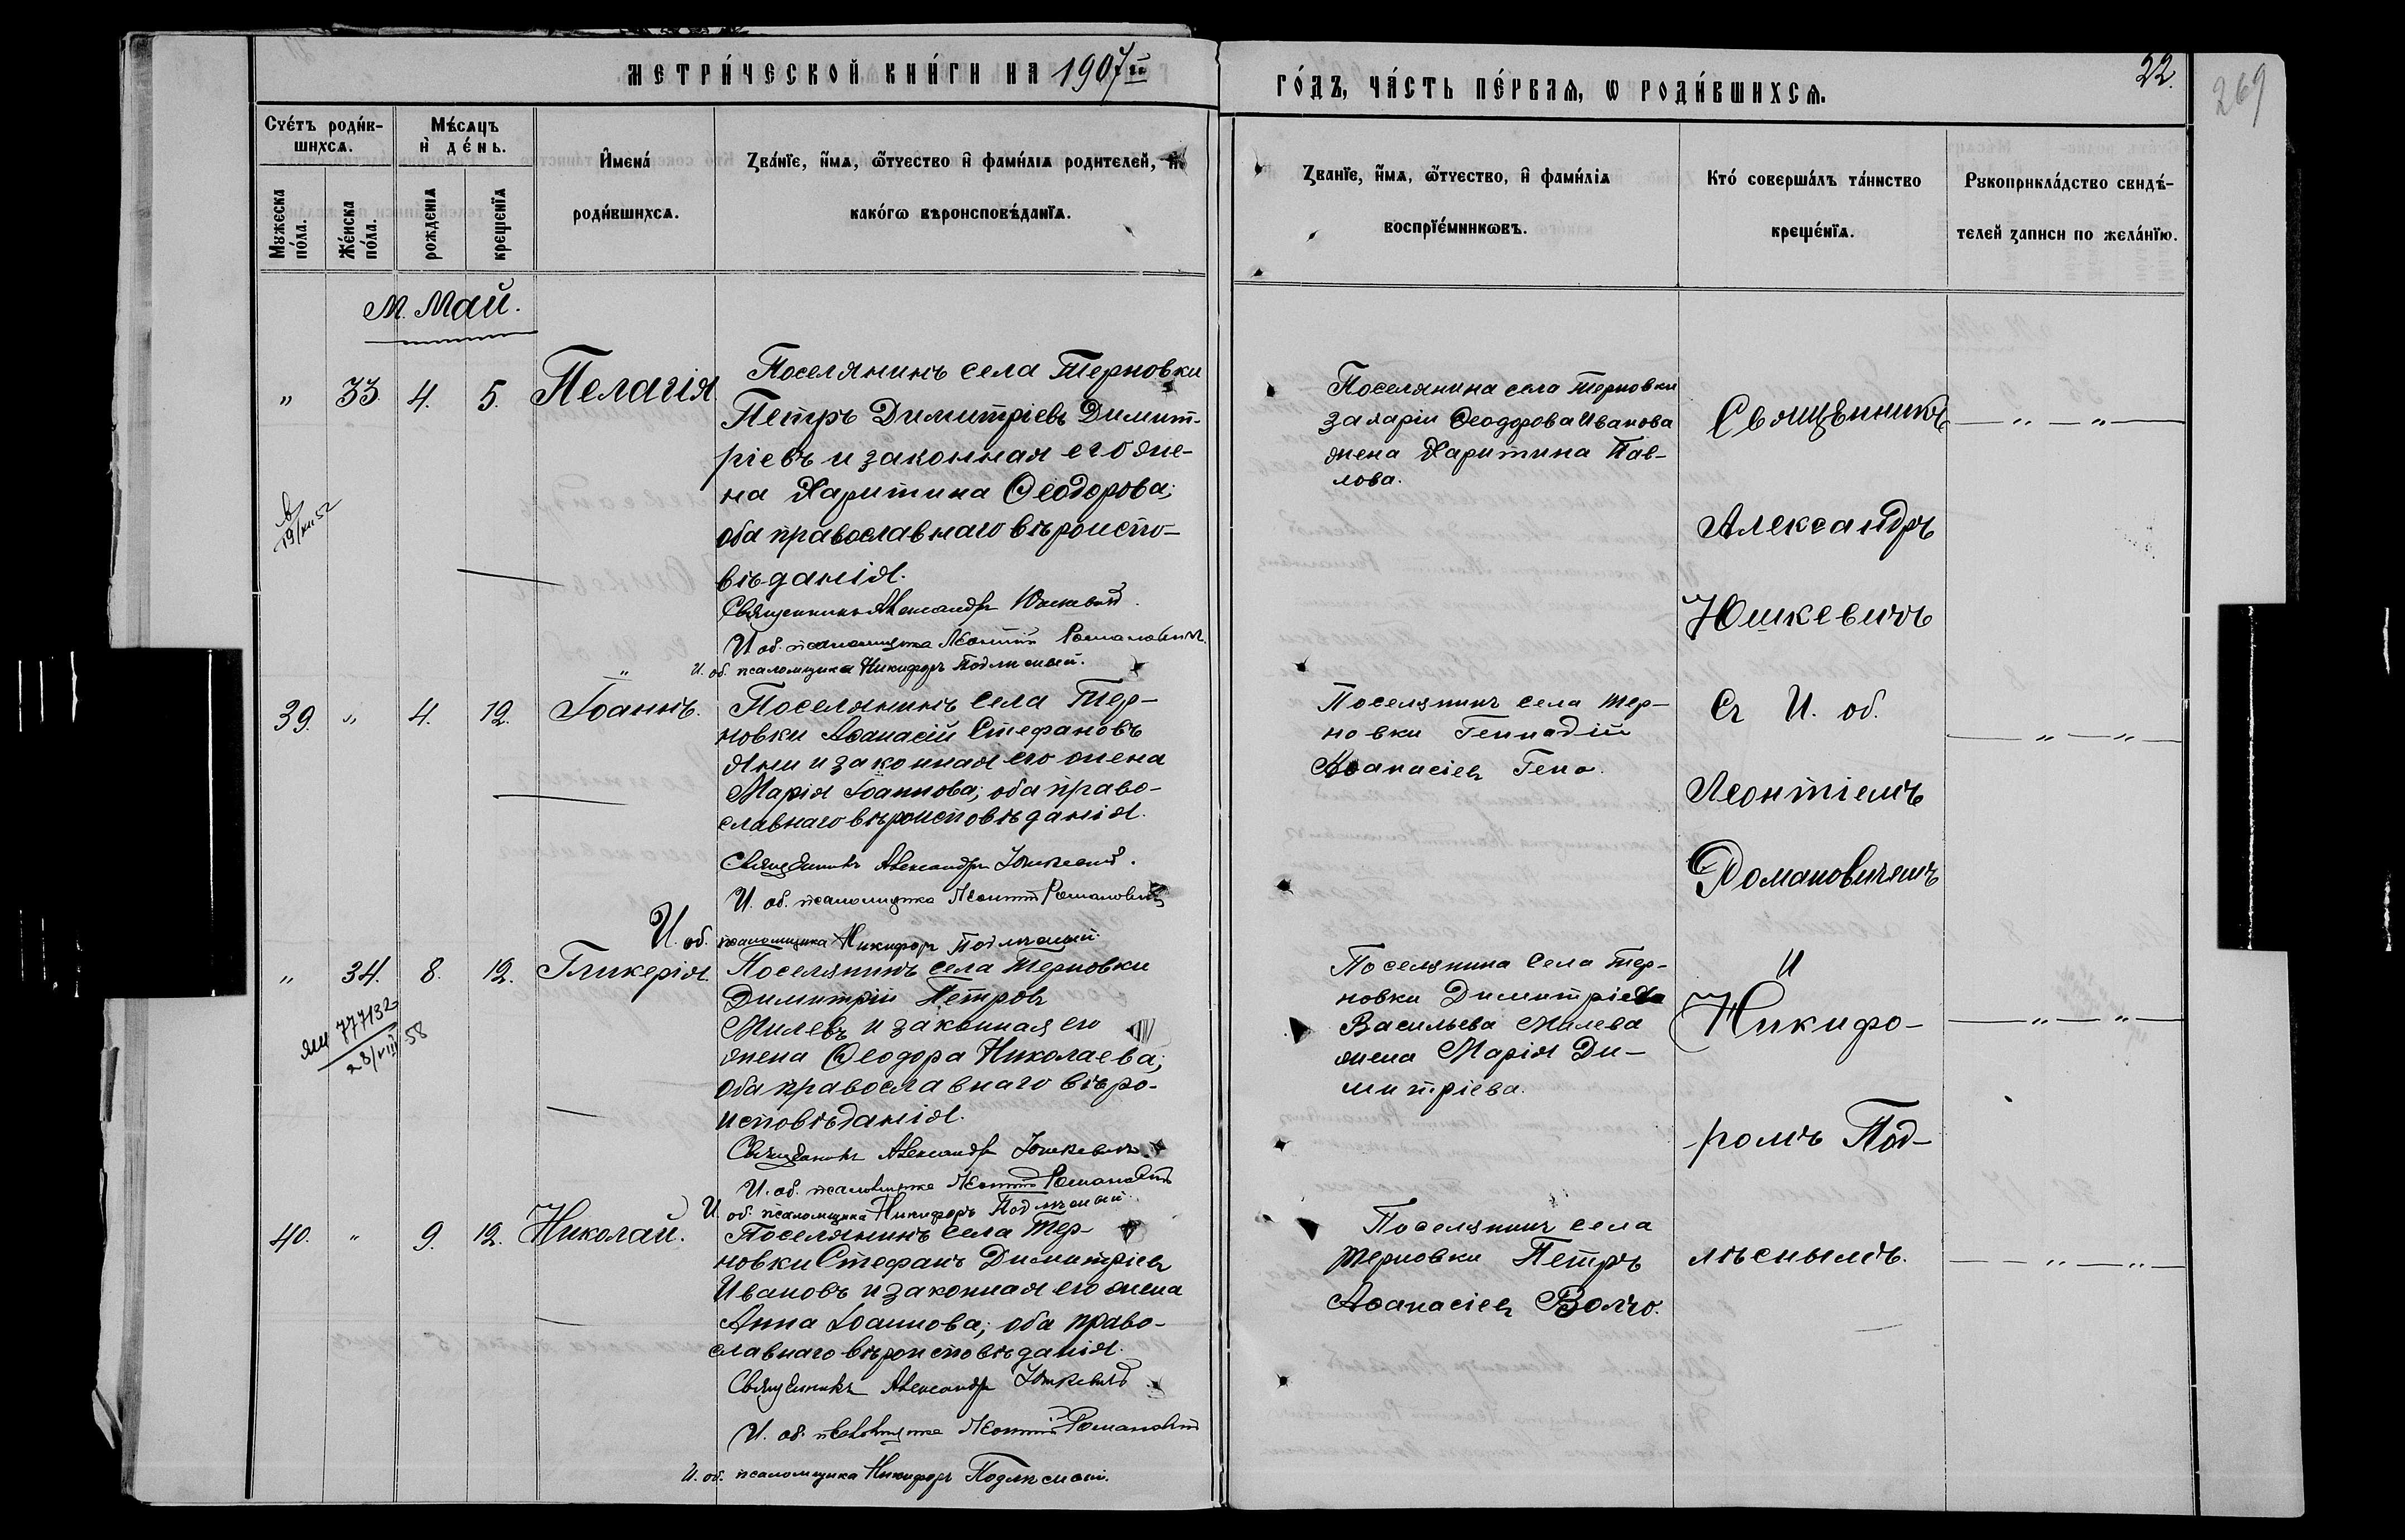 МЕТРИ́ЧЕСКОЙ КНИ́ГИ НА 1907й
ГО́ДЪ, ЧА́СТЬ ПЕ́РВАѦ, Ѡ РОДИ́ВШИХСѦ.
22.
269
Сче́тъ роди́в-
шихсѧ.
Мꙋжеска
по́ла.
Же́нска
по́ла.
Мѣ́сѧцъ
и҆ де́нь.
рожденїѧ
крещенїѧ
И҆мена́
роди́вшихсѧ.
Зва́нїе, и҆́мѧ, ѻ҆́тчество и҆ фами́лїѧ родителей, и҆
како́гѡ вѣроисповѣ́данїѧ.
Званїе, и҆́мѧ, ѻ҆́тчество, и҆ фами́лїѧ
воспрїе́мникѡвъ.
Кто́ соверша́лъ та́инство
креще́нїѧ.
Рꙋкоприкла́дство свидѣ́-
телей записи по жела́нїю.
М. Май.
" 33. 4. 5. Пелагія.
Поселянинъ села Терновки
Петръ Димитріевъ Димит-
ріевъ и законная его же-
на Харитина Ѳеодорова;
оба православнаго вѣроиспо-
вѣданія.
Священникъ Александръ Юшкевичъ.
И об. псаломщика Леонтій Романовичъ.
И. об. псаломщика Никифоръ Подлѣсный.
Поселянина села Терновки
Ѳеодорова Иванова
жена Харитина Пав-
лова.
Священникъ
Александръ
Юшкевичъ
— " — " —
19/XII 52
39. " 4. 12. Іоаннъ.
Поселянинъ села Тер-
новки Аѳанасій Стефановъ
Яни и законная его жена
Марія Іоаннова; оба право-
славнаго вѣроисповѣданія.
Священникъ Александръ Юшкевичъ.
И. об. псаломщика Леонтій Романовичъ
И. об. псаломщика Никифоръ Подлѣсный.
Поселянинъ села Тер-
новки Геннадій
Аѳанасіевъ Гено.
Съ И. об.
Леонтіемъ
Романовичемъ
— " — " —
" 34. 8. 12. Гликерія.
777132
28/VIII 58
Поселянинъ села Терновки
Димитрій Петровъ
Милевъ и законная его
жена Ѳеодора Николаева;
оба православнаго вѣро-
исповѣданія.
Священникъ Александръ Юшкевичъ.
И. об. псаломщика Леонтій Романовичъ
И. об. псаломщика Никифоръ Подлѣсный.
Поселянина села Тер-
новки Димитрія
Васильева Милева
жена Марія Ди-
митріева.
и
Никифо-
ромъ Под-
— " — " —
40. " 9. 12. Николай.
Поселянинъ села Тер-
новки Стефанъ Димитріевъ
Ивановъ и законная его жена
Анна Іоаннова; оба право-
славнаго вѣроисповѣданія.
Священникъ Александръ Юшкевичъ
И. об. псаломщика Леонтій Романовичъ
И. об. псаломщика Никифоръ Подлѣсный.
Поселянинъ села
Терновки Петръ
Аѳанасіевъ Волчо.
лѣснымъ.
— — " — " —